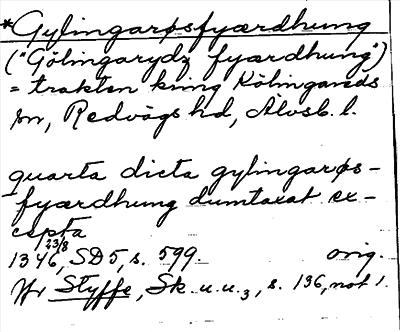 *Gylingarøsfyærdhung
("Gölingarydz fyærdhung")
= trakten kring Kölingareds
sn, Redvägs hd, Älvsb. l.
quarta dicta gylingarøs-
fyærdhung dumtaxat ex-
cepta
1346 23/8, SD 5, s. 599. orig.
Jfr Styffe, Sk. u. u. 3, s. 136, not 1.